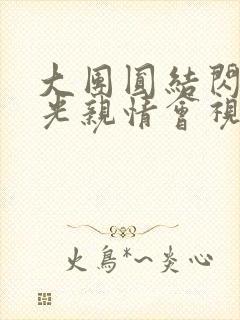 大團圓結閃
光親情會視
火鳥*~炎心